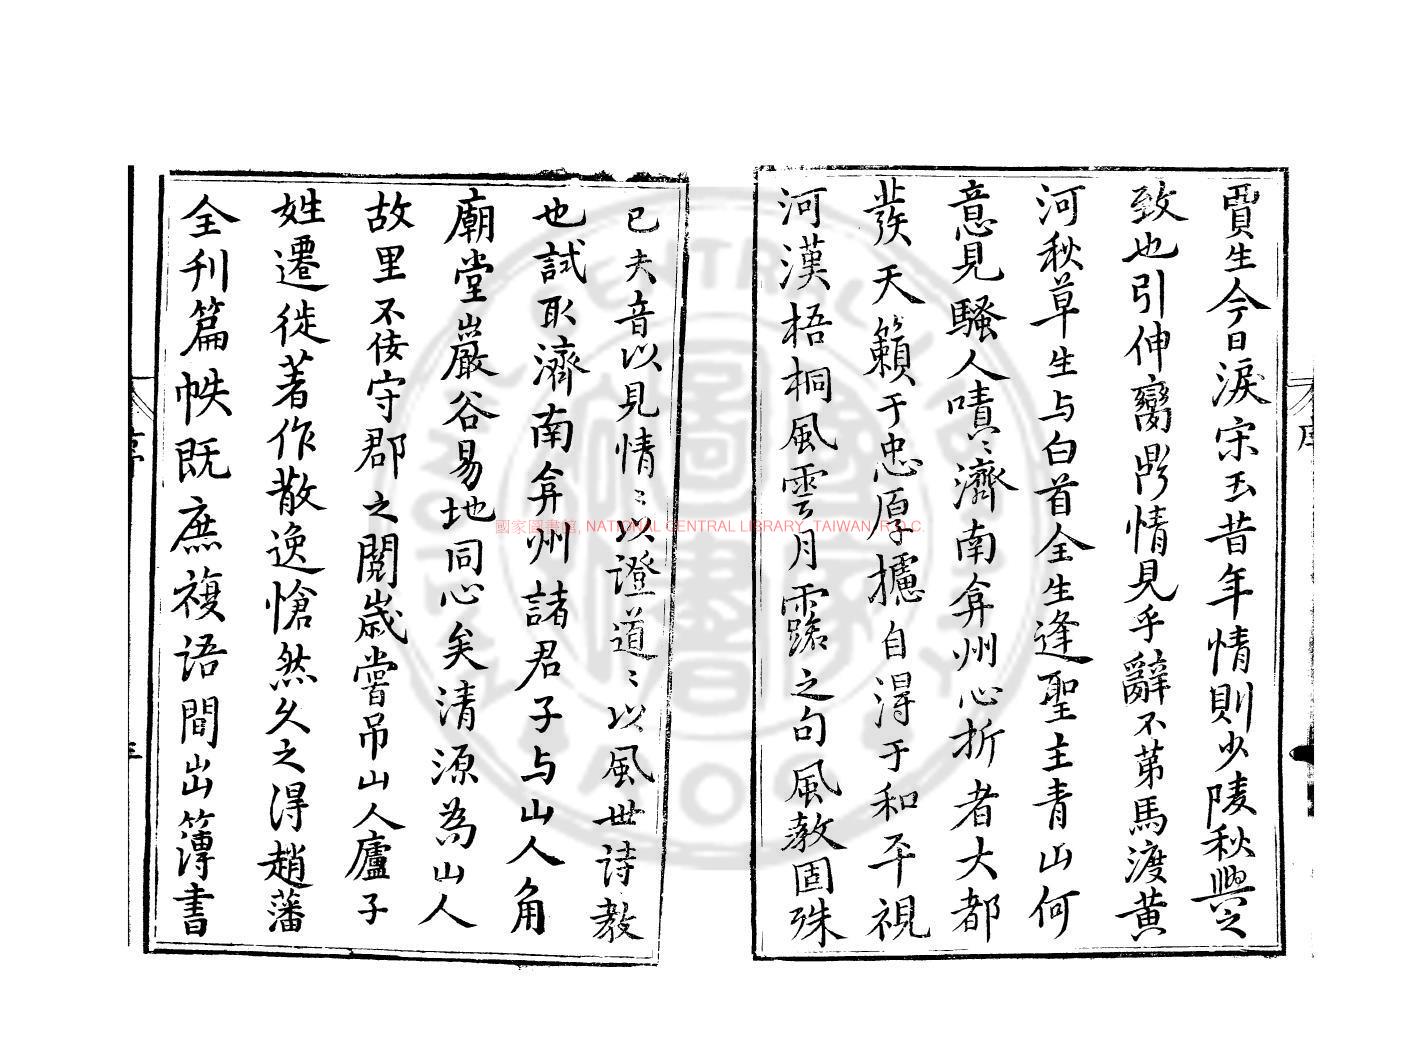 賈生今日淚宋玉昔年情則少陵秋興之
致也引伸臠𣂏情見乎辭不第馬渡黃
河秋草生与白首全生逢聖主青山何
意見騷人嘖〻濟南弇州心折者大都
發天籟于忠厚攄自得于和平視
河漢梧桐風雲月露之句風教固殊
已夫音以見情〻以證道〻以風世詩教
也試取濟南弇州諸君子与山人角
廟堂巖谷易地同心矣清源為山人
故里不佞守郡之閱歲嘗吊山人廬子
姓遷徙著作散逸愴然久之得趙藩
全刊篇帙既庶複語間出簿書
序
國家圖書館, NATIONAL CENTRAL LIBRARY, TAIWAN, R.O.C.